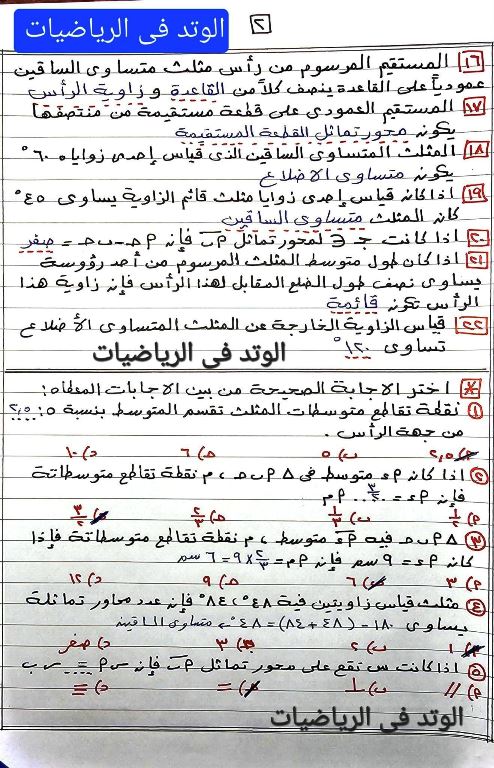 ٢
الوتد فى الرياضيات
١٦ المستقيم المرسوم من رأس مثلث متساوى الساقين
عمودياً على القاعدة ينصف كلاً من القاعدة و زاوية الرأس
١٧ المستقيم العمودى على قطعة مستقيمة من منتصفها
يكون محور تماثل القطعة المستقيمة
١٨ المثلث المتساوى الساقين الذى قياس إحدى زواياه ٦٠°
يكون متساوى الاضلاع
١٩ اذا كان قياس إحدى زوايا مثلث قائم الزاوية يساوى ٤٥°
كان المثلث متساوى الساقين
٢٠ اذا كانت جـ ∈ لمحور تماثل أب فإن أحـ - بحـ = صفر
٢١ اذا كان طول متوسط المثلث المرسوم من أحد رؤوسة
يساوى نصف طول الضلع المقابل لهذا الرأس فإن زاوية هذا
الرأس تكون قائمة
٢٢ قياس الزاوية الخارجة عن المثلث المتساوى الأضلاع
تساوى ١٢٠°
الوتد فى الرياضيات
* اختر الاجابة الصحيحة من بين الاجابات المعطاه:
١ نقطة تقاطع متوسطات المثلث تقسم المتوسط بنسبة ٥: ٢,٥
من جهة الرأس .
أ) ٢,٥ ب) ٥ حـ) ٦ د) ١٠
٢ اذا كان أء متوسط فى △ أ ب حـ ، م نقطة تقاطع متوسطاتة
فإن أء = ٣/٢ أم
أ) ١/٢ ب) ١ حـ) ٢/٣ د) ٣/٢
٣ △ أ ب حـ فيه أء متوسط ، م نقطة تقاطع متوسطاتة فإذا
كان أء = ٩ سم فإن أم = ٢/٣ × ٩ = ٦ سم
أ) ٣ ب) ٦ حـ) ٩ د) ١٢
٤ مثلث قياس زاويتين فية ٤٨° ، ٨٤° فإن عدد محاور تماثلة
يساوى ١٨٠ - (٤٨ + ٨٤) = ٤٨° ∴ متساوى الساقين
أ) ١ ب) ٢ حـ) ٣ د) صفر
٥ اذا كانت س تقع على محور تماثل أب فإن س أ = س ب
أ) // ب) ⊥ حـ) = د) ≡
الوتد فى الرياضيات